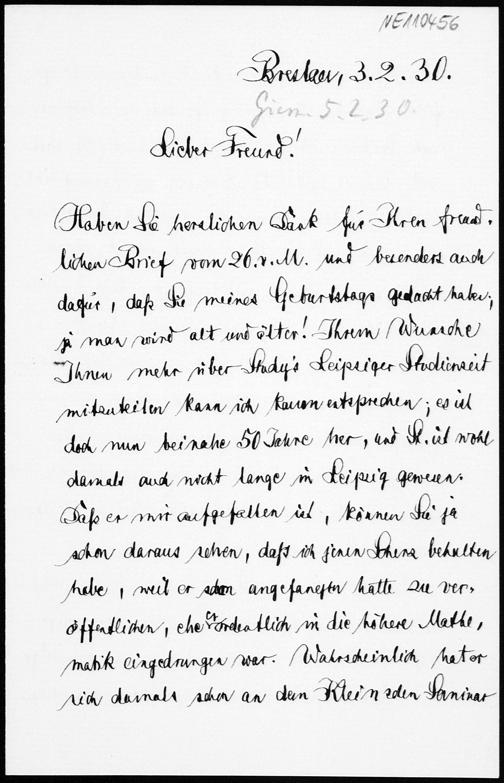 NE110456
Breslau, 3.2.30.
5.2.30.
Lieber Freund!
Haben Sie herzlichen Dank für Ihren freund-
lichen Brief vom 26.v.M. und besonders auch
dafür, daß Sie meines Geburtstags gedacht haben;
ja man wird alt und älter! Ihrem Wunsche
Ihnen mehr über Study's Leipziger Studienzeit
mitzuteilen kann ich kaum entsprechen; es ist
doch nun beinahe 50 Jahre her, und St. ist wohl
damals auch nicht lange in Leipzig gewesen.
Daß er mir aufgefallen ist, können Sie ja
schon daraus sehen, daß ich jenen Scherz behalten
habe, weil er schon angefangen hatte zu ver-
öffentlichen, ehe er ordentlich in die höhere Mathe-
matik eingedrungen war. Wahrscheinlich hat er
sich damals schon an dem Klein schen Seminar